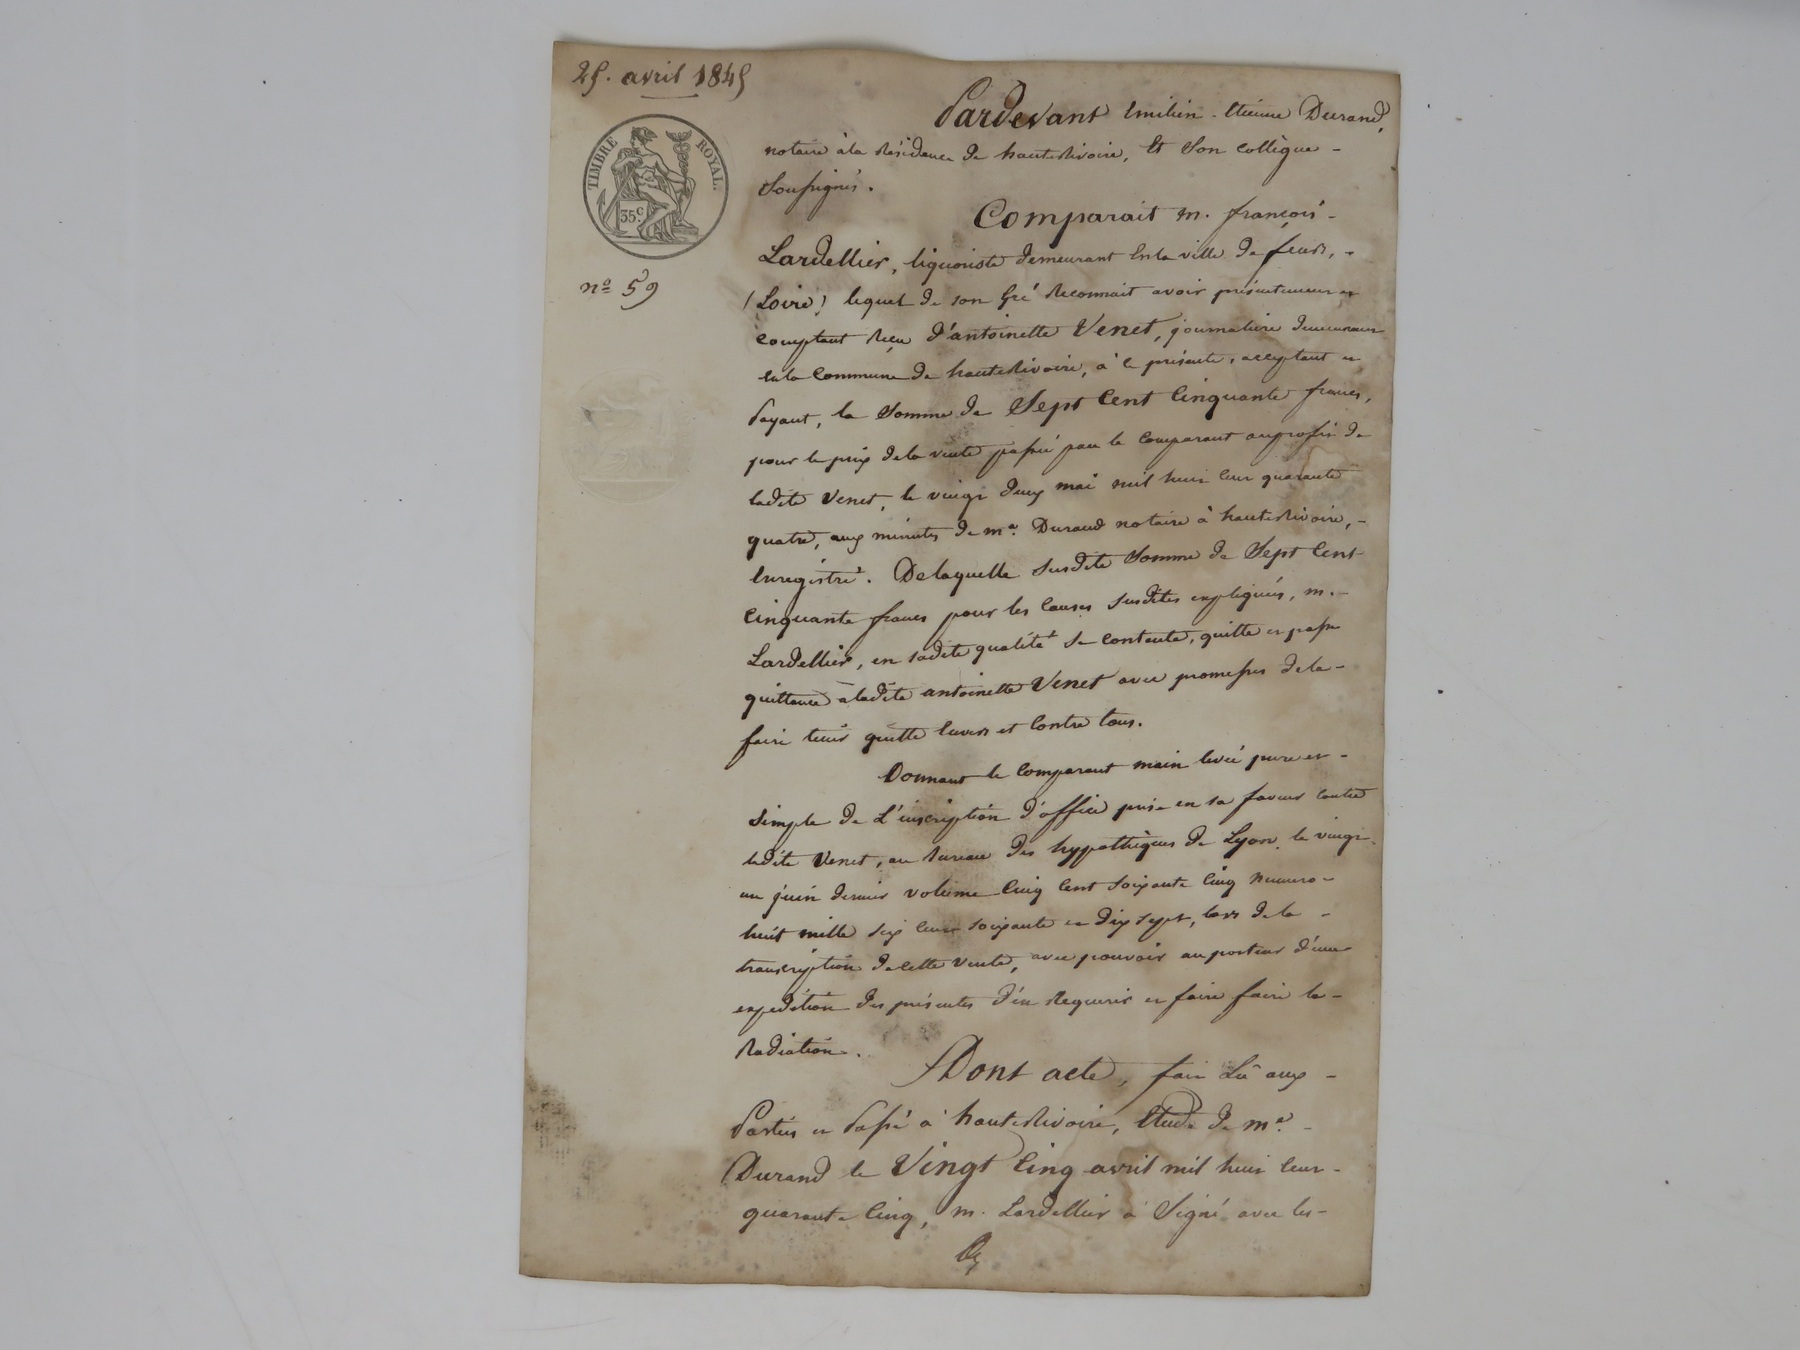 25. avril 1845
TIMBRE ROYAL.
35c.
no 59
Pardevant Emilien-Etienne Durand,
notaire à la Résidence de hauterivoire, Et Son Collègue -
Soussignés.
Comparait m. françois -
Lardellier, liquoriste demeurant En la ville de feurs, -
(Loire) lequel de son Gré Reconnait avoir présentement et
comptant Reçu d'antoinette Venet, journalière demeurant
en la Commune de hauterivoire, à ce présente, acceptant et
Payant, la Somme de Sept Cent Cinquante francs,
pour le prix de la vente passée par le Comparant au profit de
ladite Venet, le vingt deux mai mil huit Cent quarante
quatre, aux minutes de me. Durand notaire à hauterivoire, -
Enregistré. De laquelle Susdite Somme de Sept Cent
Cinquante francs pour les Causes Susdites expliquées, m. -
Lardellier, en sadite qualité Se contente, quitte et passe
quittance à ladite antoinette Venet avec promesses de la -
faire tenir quitte Envers et Contre tous.
Donnant le Comparant main levée pure et -
Simple de L'inscription d'office prise en sa faveur contre
ladite Venet, au bureau des hypothèques de Lyon, le vingt
un juin dernier volume Cinq Cent soixante Cinq Numero -
huit mille six Cent soixante et dix sept, lors de la -
transcription de cette Vente, avec pouvoir au porteur d'une
expédition des présentes d'en Requerir et faire faire la -
Radiation.
Dont acte, fait Lu aux -
Parties et Passé à hauterivoire, Etude de me. -
Durand le Vingt Cinq avril mil huit Cent -
quarante Cinq, m. Lardellier a Signé avec les -